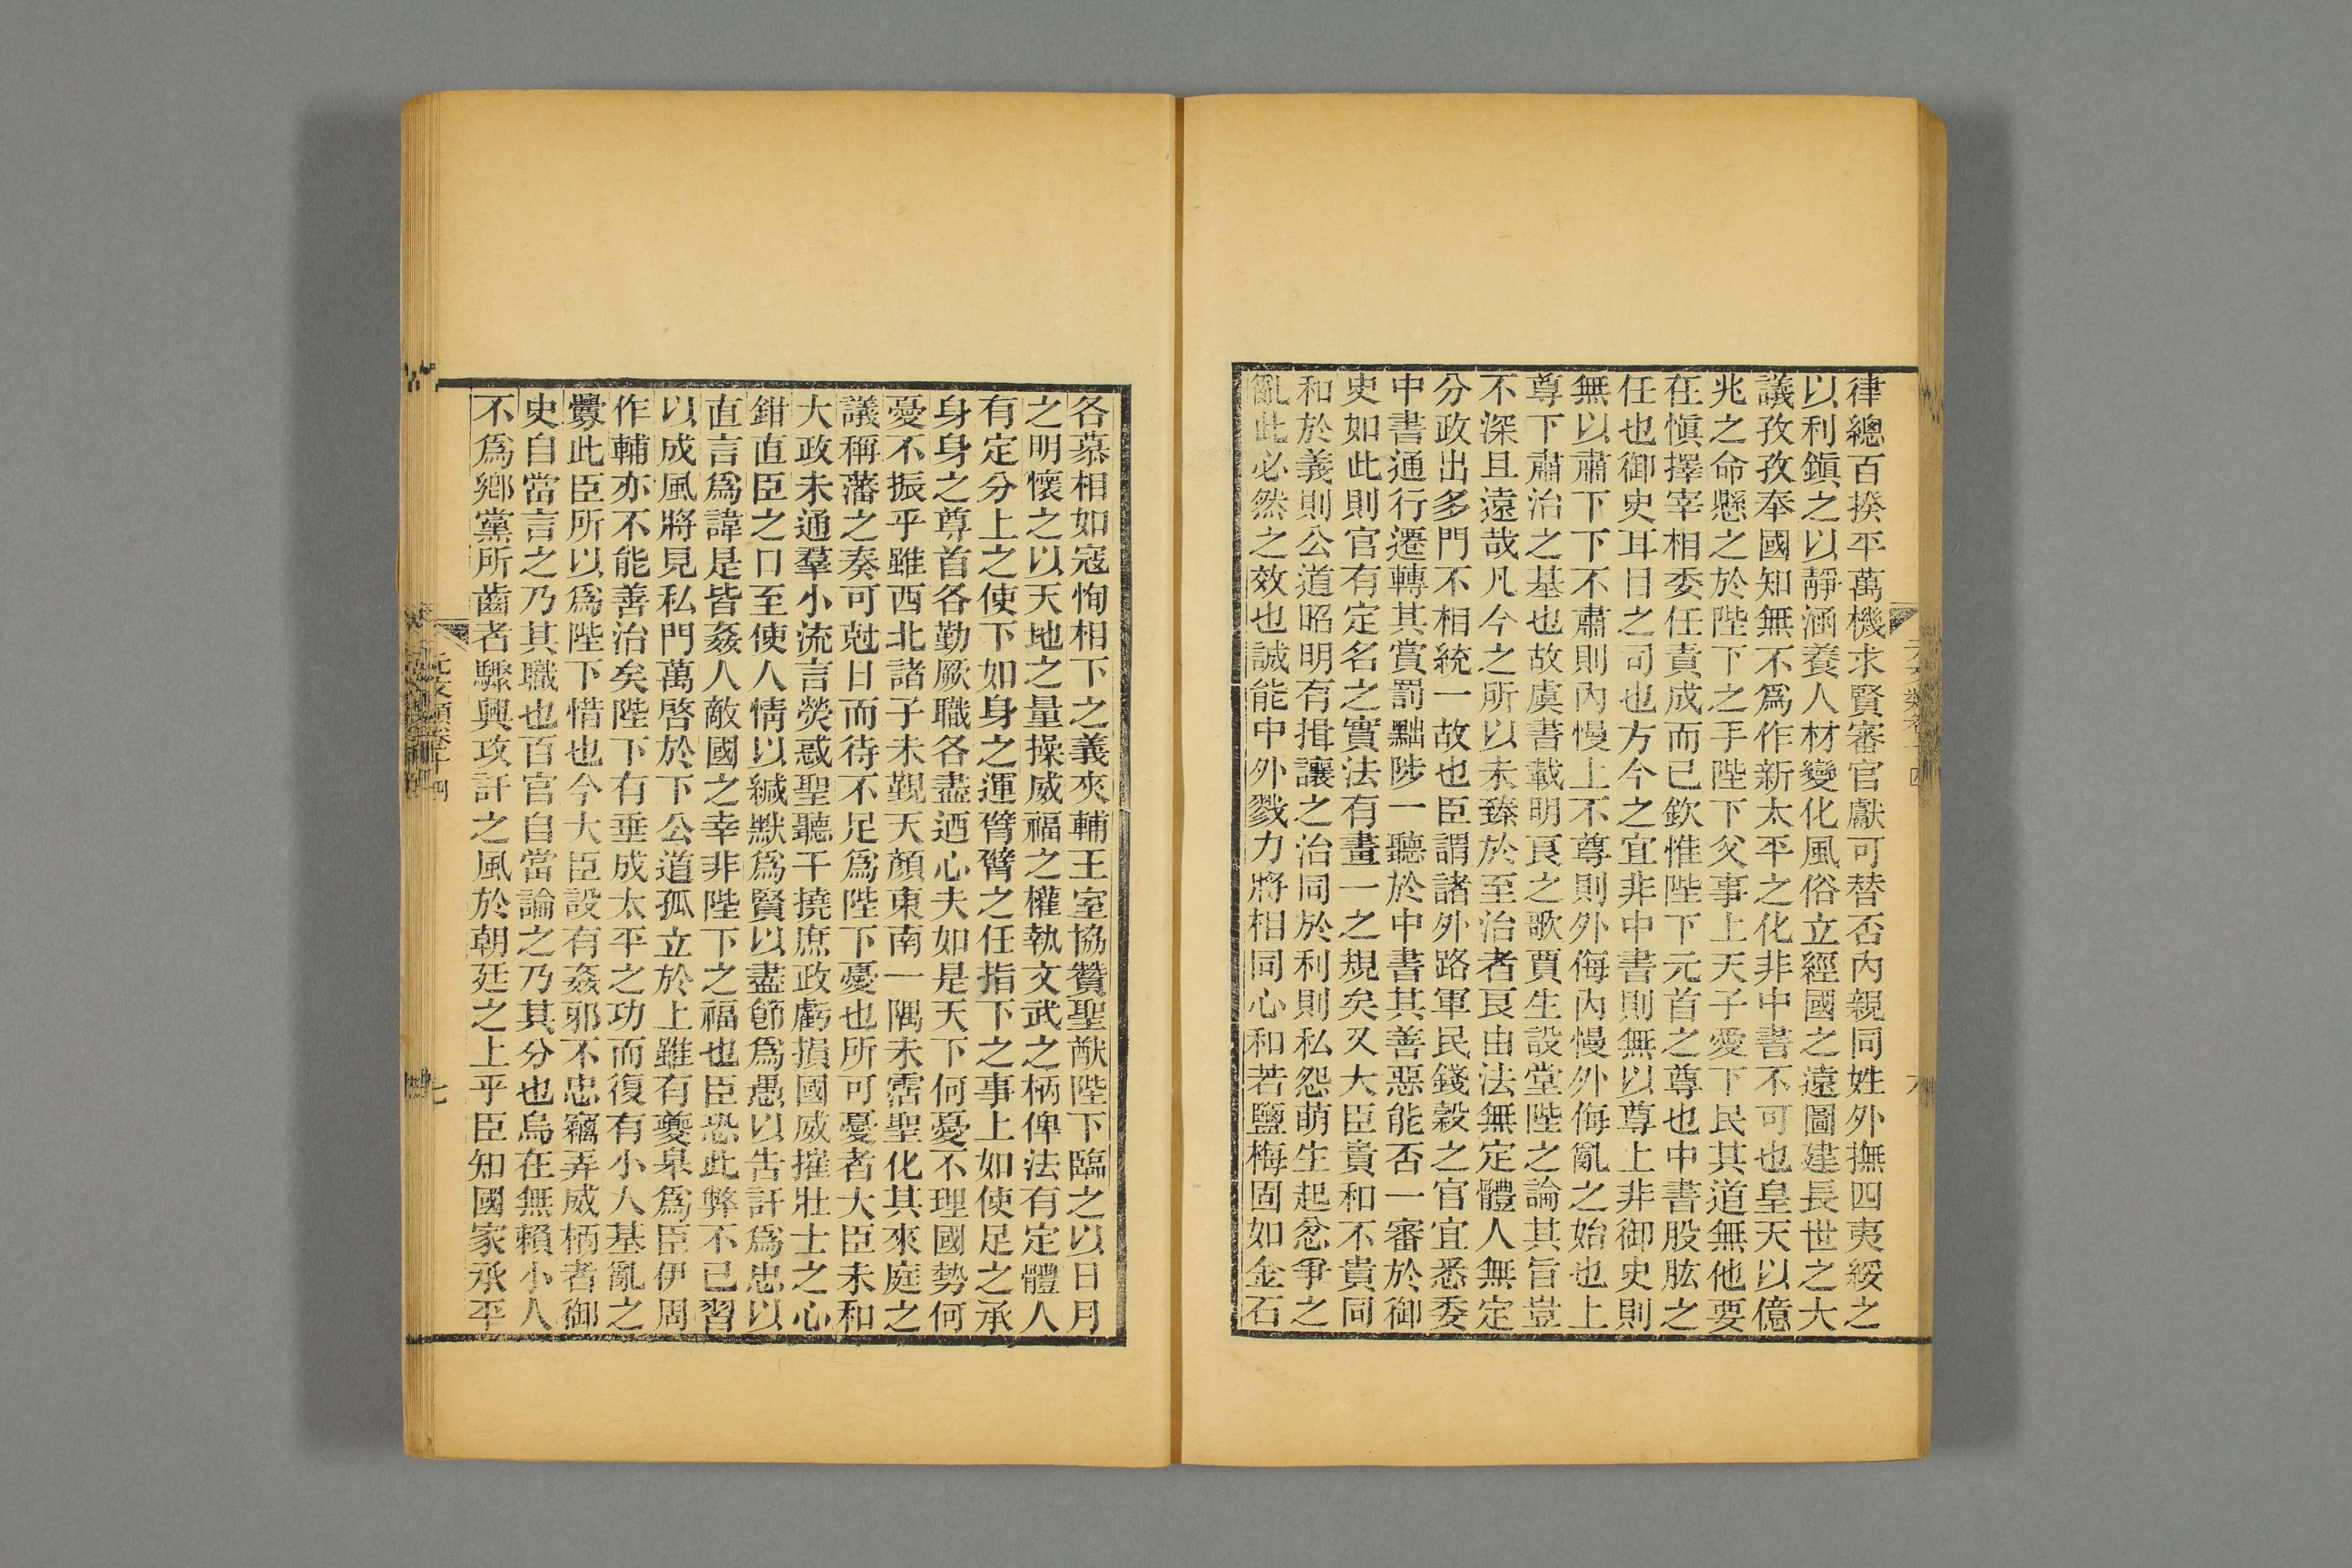 律總百揆平萬機求賢審官獻可替否內親同姓外撫四夷綏之
以利鎭之以靜涵養人材變化風俗立經國之遠圖建長世之大
議孜孜奉國知無不爲作新太平之化非中書不可也皇天以億
兆之命懸之於陛下之手陛下父事上天子愛下民其道無他要
在愼擇宰相委任責成而已欽惟陛下元首之尊也中書股肱之
任也御史耳目之司也方今之宜非中書則無以尊上非御史則
無以肅下下不肅則內慢上不尊則外侮內慢外侮亂之始也上
尊下肅治之基也故虞書載明良之歌賈生設堂陛之論其旨豈
不深且遠哉凡今之所以未臻於至治者良由法無定體人無定
分政出多門不相統一故也臣謂諸外路軍民錢穀之官宜悉委
中書通行遷轉其賞罰黜陟一聽於中書其善惡能否一審於御
史如此則官有定名之實法有畫一之規矣又大臣貴和不貴同
和於義則公道昭明有揖讓之治同於利則私怨萌生起忿爭之
亂此必然之效也誠能中外戮力將相同心和若鹽梅固如金石
各慕相如寇恂相下之義夾輔王室協贊聖猷陛下臨之以日月
之明懷之以天地之量操威福之權執文武之柄俾法有定體人
有定分上之使下如身之運臂臂之任指下之事上如使足之承
身身之尊首各勤厥職各盡迺心夫如是天下何憂不理國勢何
憂不振乎雖西北諸子未覲天顏東南一隅未霑聖化其來庭之
議稱藩之奏可尅日而待不足爲陛下憂也所可憂者大臣未和
大政未通羣小流言熒惑聖聽干撓庶政虧損國威摧壯士之心
鉗直臣之口至使人情以緘默爲賢以盡節爲愚以告訐爲忠以
直言爲諱是皆姦人敵國之幸非陛下之福也臣恐此弊不已習
以成風將見私門萬啓於下公道孤立於上雖有夔臯爲臣伊周
作輔亦不能善治矣陛下有垂成太平之功而復有小人基亂之
釁此臣所以爲陛下惜也今大臣設有姦邪不忠竊弄威柄者御
史自當言之乃其職也百官自當論之乃其分也烏在無賴小人
不爲鄉黨所齒者驟興攻訐之風於朝廷之上乎臣知國家承平
七